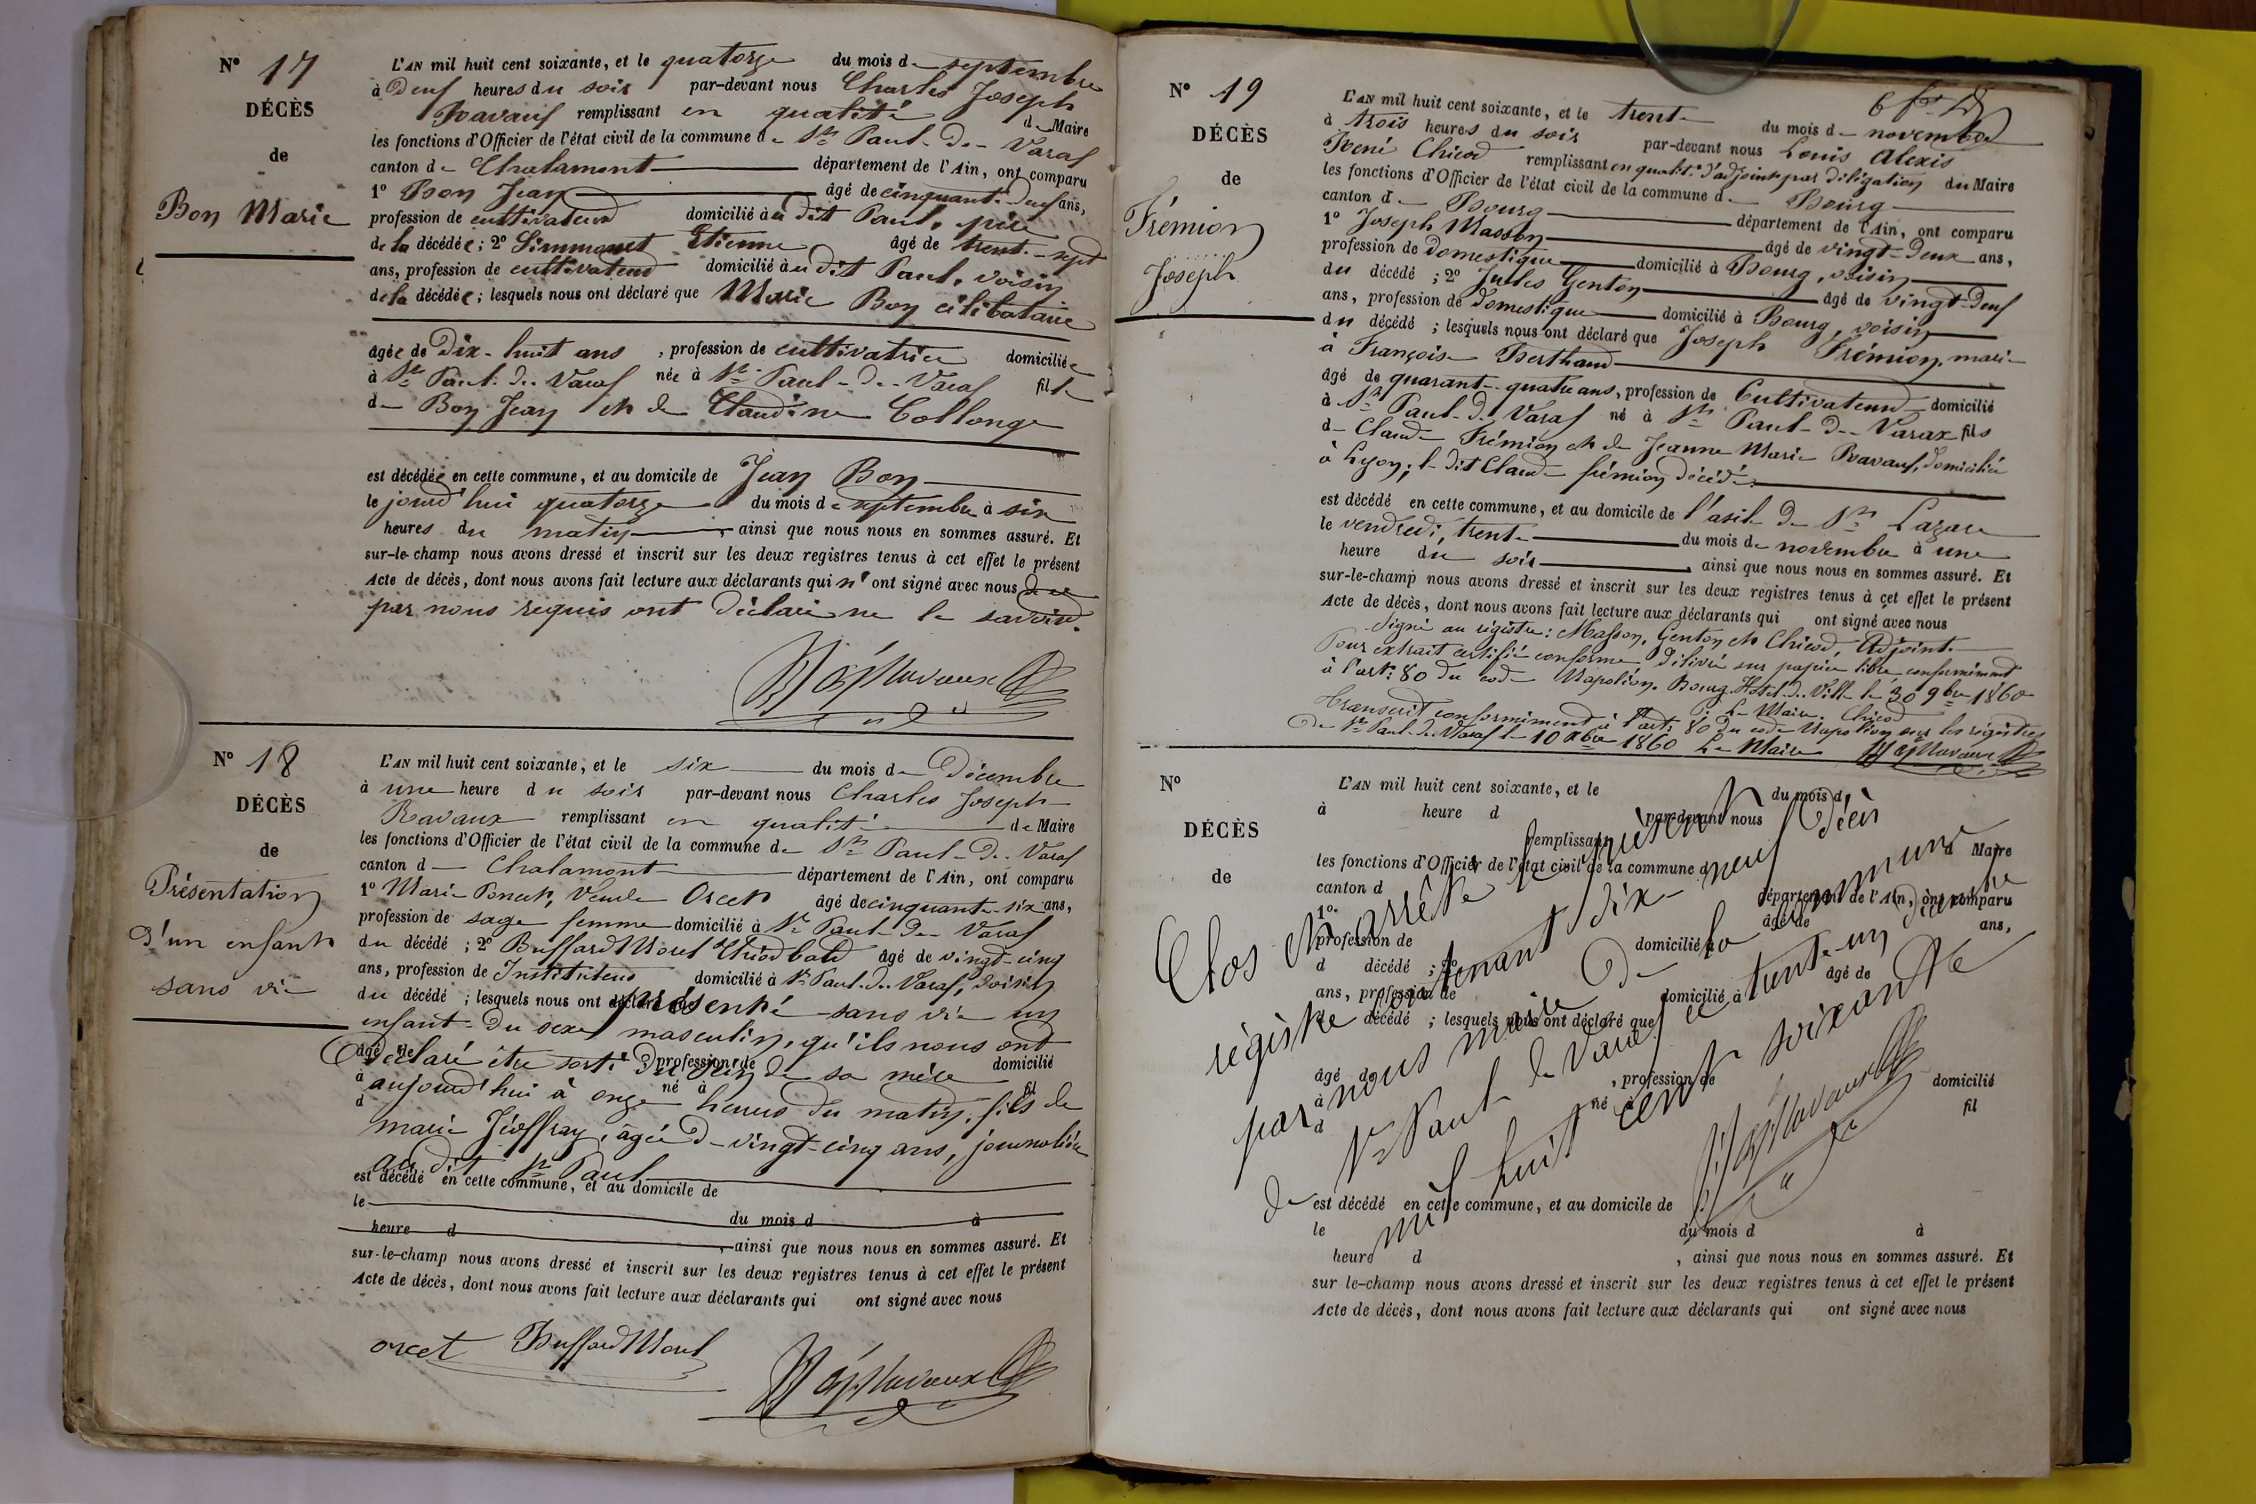 N° 17
DÉCÈS
de
Bon Marie
L'AN mil huit cent soixante, et le quatorze du mois de septembre
à deux heures du soir par-devant nous Charles Joseph
Ravaux remplissant en qualité de Maire
les fonctions d'Officier de l'état civil de la commune de St Paul-de-Varax
canton de Chalamont département de l'Ain, ont comparu
1° Bon Jean âgé de cinquante-deux ans,
profession de cultivateur domicilié à u dit Paul, père
de la décédée ; 2° Simmonet Etienne âgé de trente-sept
ans, profession de cultivateur domicilié à u dit Paul, voisin
de la décédée ; lesquels nous ont déclaré que Marie Bon célibataire
âgée de dix-huit ans, profession de cultivatrice domiciliée
à St Paul-de-Varax née à St Paul-de-Varax fille
de Bon Jean et de Claudine Collonge
est décédée en cette commune, et au domicile de Jean Bon
le jourd'hui quatorze du mois de septembre à six
heures du matin, ainsi que nous nous en sommes assuré. Et
sur-le-champ nous avons dressé et inscrit sur les deux registres tenus à cet effet le présent
Acte de décès, dont nous avons fait lecture aux déclarants qui n'ont signé avec nous de ce
par nous requis ont déclaré ne le savoir.
N° 18
DÉCÈS
de
Présentation
d'un enfant
sans vie
L'AN mil huit cent soixante, et le six du mois de Décembre
à une heure du soir par-devant nous Charles Joseph
Ravaux remplissant en qualité de Maire
les fonctions d'Officier de l'état civil de la commune de St Paul-de-Varax
canton de Chalamont département de l'Ain, ont comparu
1° Marie Poncet, Veuve Orcet âgé de cinquante-six ans,
profession de sage femme domicilié à St Paul-de-Varax
du décédé ; 2° Buffard Morel Théodbald âgé de vingt-cinq
ans, profession de Instituteur domicilié à St Paul-de-Varax, voisin
du décédé ; lesquels nous ont déclaré que présenté sans vie un
enfant du sexe masculin, qu'ils nous ont
âgé de déclaré être sorti du sein de sa mère profession de domicilié
à aujourd'hui à onze heures du matin, fils de né à fil
d marie Jéoffray, âgée de vingt-cinq ans, journalière
au dit St Paul
est décédé en cette commune, et au domicile de
le du mois d à
heure d , ainsi que nous nous en sommes assuré. Et
sur-le-champ nous avons dressé et inscrit sur les deux registres tenus à cet effet le présent
Acte de décès, dont nous avons fait lecture aux déclarants qui ont signé avec nous
orcet Buffard Morel
N° 19
DÉCÈS
de
Frémion
Joseph
L'AN mil huit cent soixante, et le trente du mois de novembre
à trois heures du soir par-devant nous Louis Alexis
René Chicod remplissant en qualité d'adjoint par délégation du Maire
les fonctions d'Officier de l'état civil de la commune de Bourg
canton de Bourg département de l'Ain, ont comparu
1° Joseph Masson âgé de vingt-deux ans,
profession de domestique domicilié à Bourg, voisin
du décédé ; 2° Jules Genton âgé de vingt-deux
ans, profession de domestique domicilié à Bourg, voisin
du décédé ; lesquels nous ont déclaré que Joseph Frémion, mari
à Françoise Berthaud
âgé de quarante-quatre ans, profession de Cultivateur domicilié
à St Paul-de-Varax né à St Paul-de-Varax fils
de Claude Frémion et de Jeanne Marie Ravaux, domiciliée
à Lyon ; le dit Claude frémion décédé.
est décédé en cette commune, et au domicile de l'asile de St Lazare
le vendredi, trente du mois de novembre à une
heure du soir, ainsi que nous nous en sommes assuré. Et
sur-le-champ nous avons dressé et inscrit sur les deux registres tenus à cet effet le présent
Acte de décès, dont nous avons fait lecture aux déclarants qui ont signé avec nous
Signé au registre : Masson, Genton et Chicod, Adjoint.
Pour extrait certifié conforme, délivré sur papier libre conformément
à l'art: 80 du code Napoléon. Bourg Hôtel-de-Ville le 30 9bre 1860
P. Le Maire, Chicod
Transcrit conformément à l'art: 80 du code Napoléon sur les registres
de St Paul-de-Varax le 10 Xbre 1860 Le Maire
N°
DÉCÈS
de
L'AN mil huit cent soixante, et le du mois d
à heure d par-devant nous
remplissant d Maire
les fonctions d'Officier de l'état civil de la commune d
canton d département de l'Ain, ont comparu
1° âgé de ans,
profession de domicilié à
d décédé ; 2° âgé de
ans, profession de domicilié à
d décédé ; lesquels nous ont déclaré que
âgé de , profession de domicilié
à né à fil
d
est décédé en cette commune, et au domicile de
le du mois d à
heure d , ainsi que nous nous en sommes assuré. Et
sur le-champ nous avons dressé et inscrit sur les deux registres tenus à cet effet le présent
Acte de décès, dont nous avons fait lecture aux déclarants qui ont signé avec nous
Clos et arrêté le présent
régistre contenant dix-neuf décès
par nous maire de la commune
de St Paul de Varax ce trente-un décembre
mil huit cent soixante